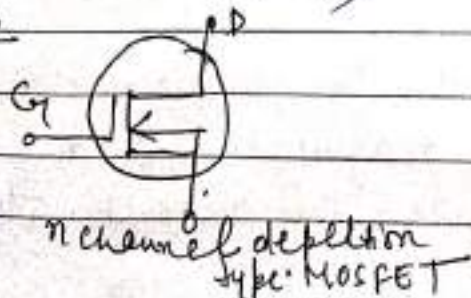 D
G
n channel depletion
type MOSFET